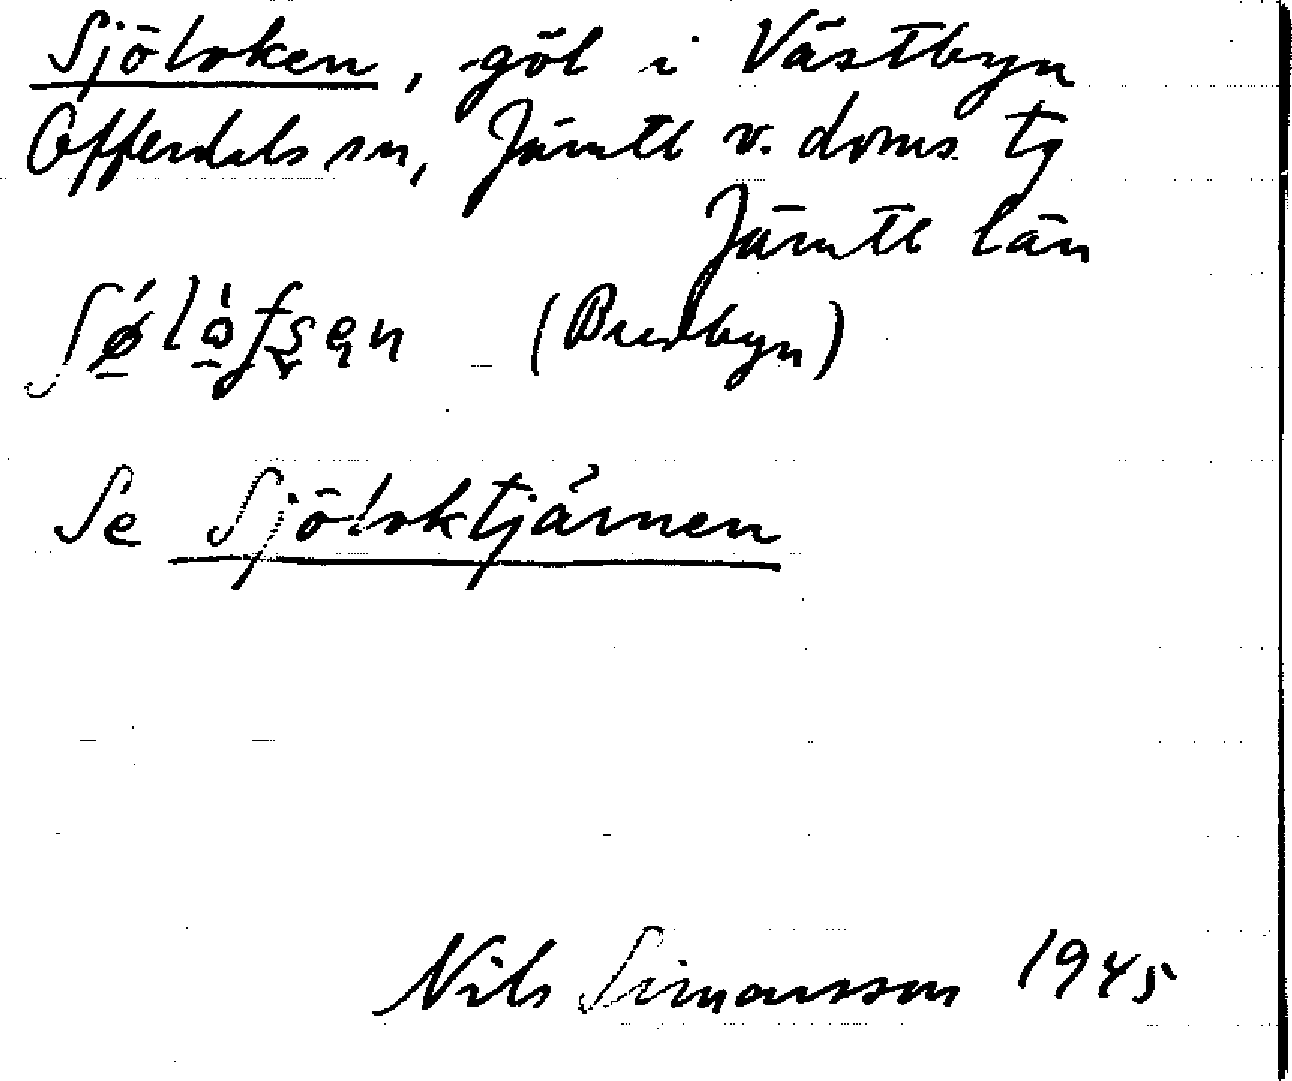 Sjöloken, göl i Västbyn
Offerdals sn, Jämtl v. doms tg
Jämtl län
(Bredbyn)
Se Sjöloktjärnen
Nils Simonsson 1945